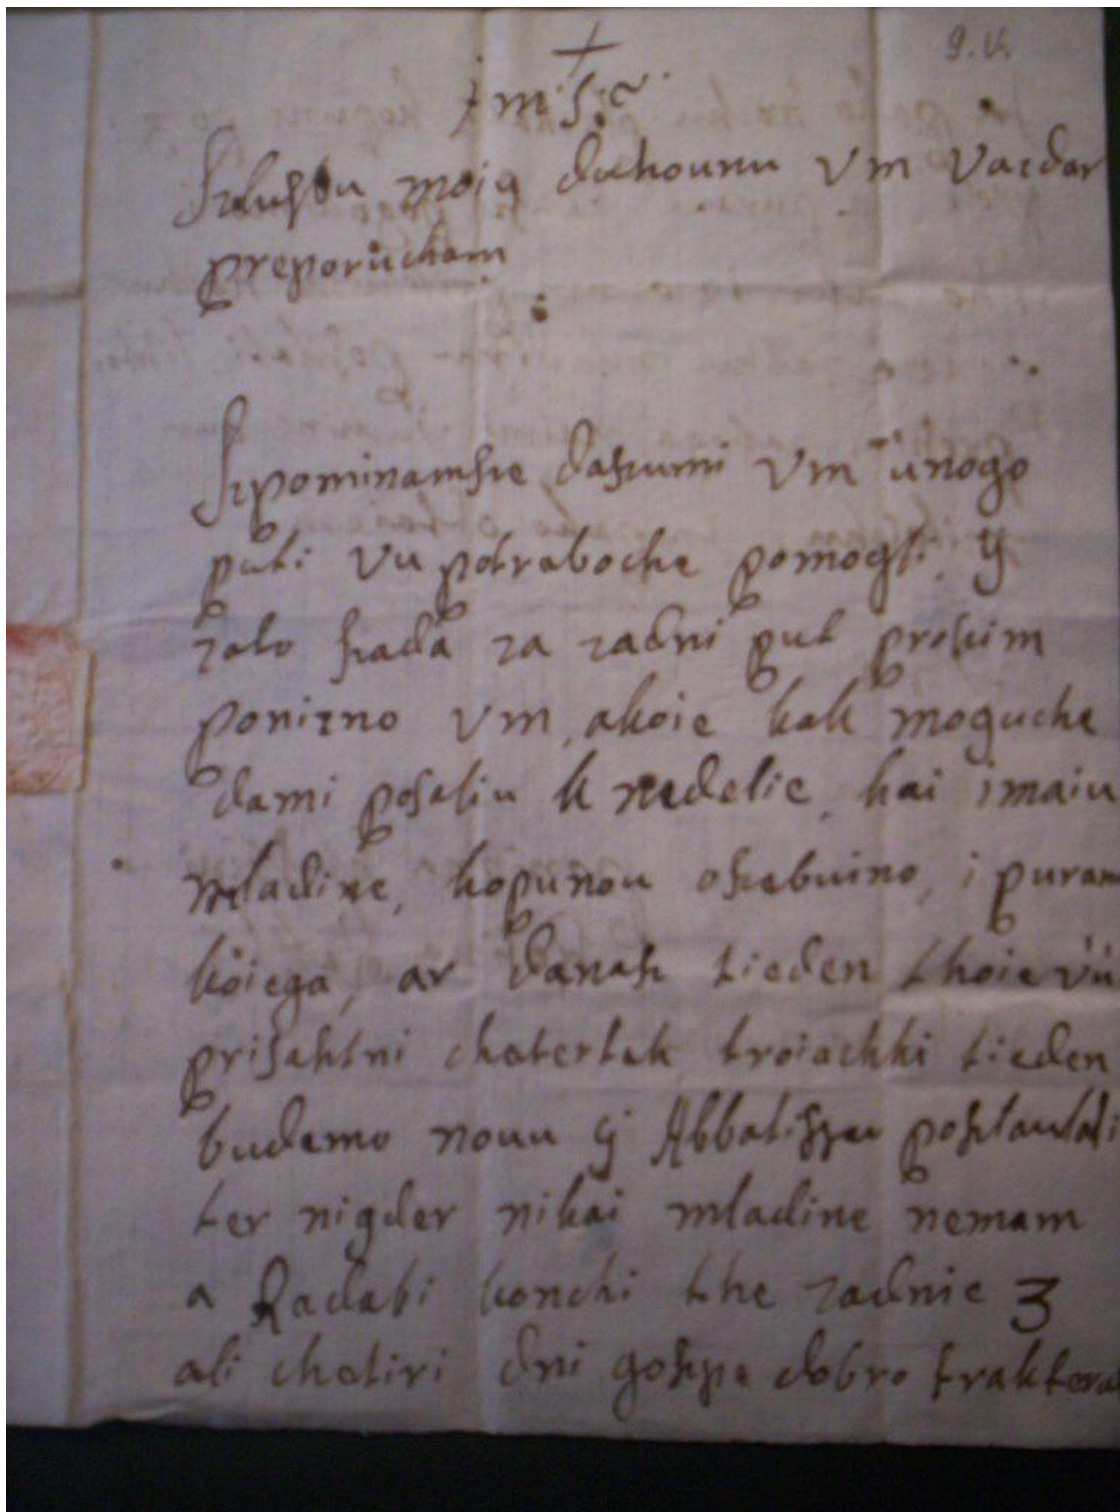 +
g.v.
Szlusbu moiu duhounu Vm Vazdar
preporücham
Szpominamsze daszumi Vm unogo
puti vu potreboche pomogli, ÿ
zato szada za zadni put proszim
ponizno Vm, akoie kak moguche
dami posaliu k nedelie, kai imaiu
mladine, kopunou oszebuino, i puran
koiega, ar danasz tieden thoie vü
prisesztni chetertek troiachki tieden
budemo novu ÿ Abbatiszu posztaulali
ter nigder nikai mladine nemam
a Radabi konchi the zadnie 3
ali chetiri dni goszpe dobro traktera